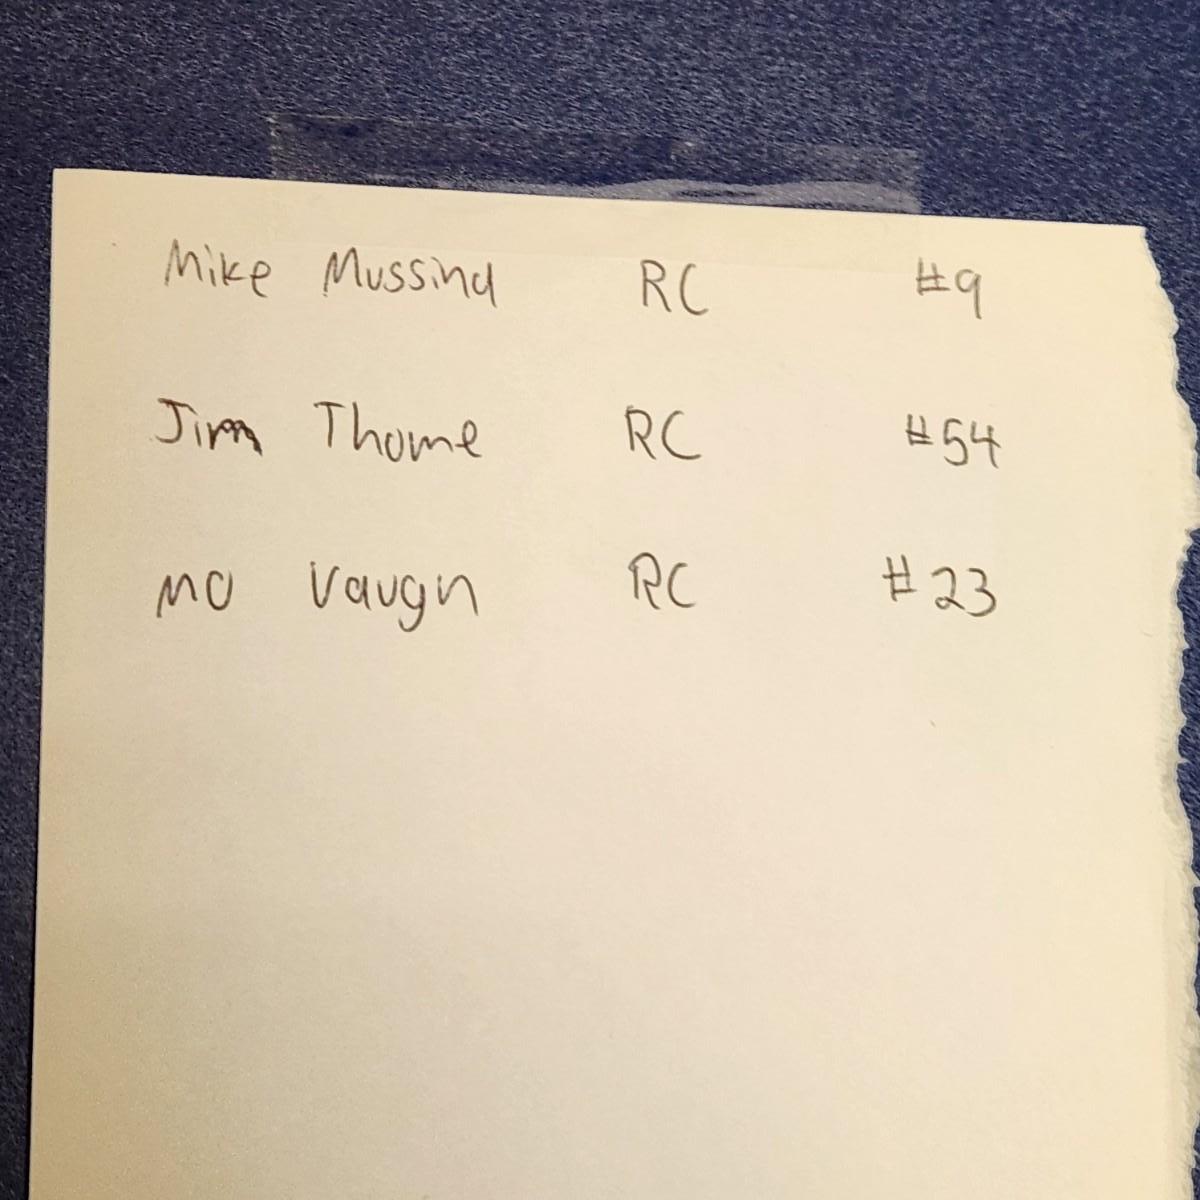 Mike Mussina RC #9
Jim Thome RC #54
MO Vaugn RC #23